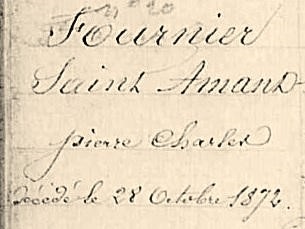 n° 20
Fournier
Saint Amand
pierre Charles
décédé le 28 Octobre 1872.